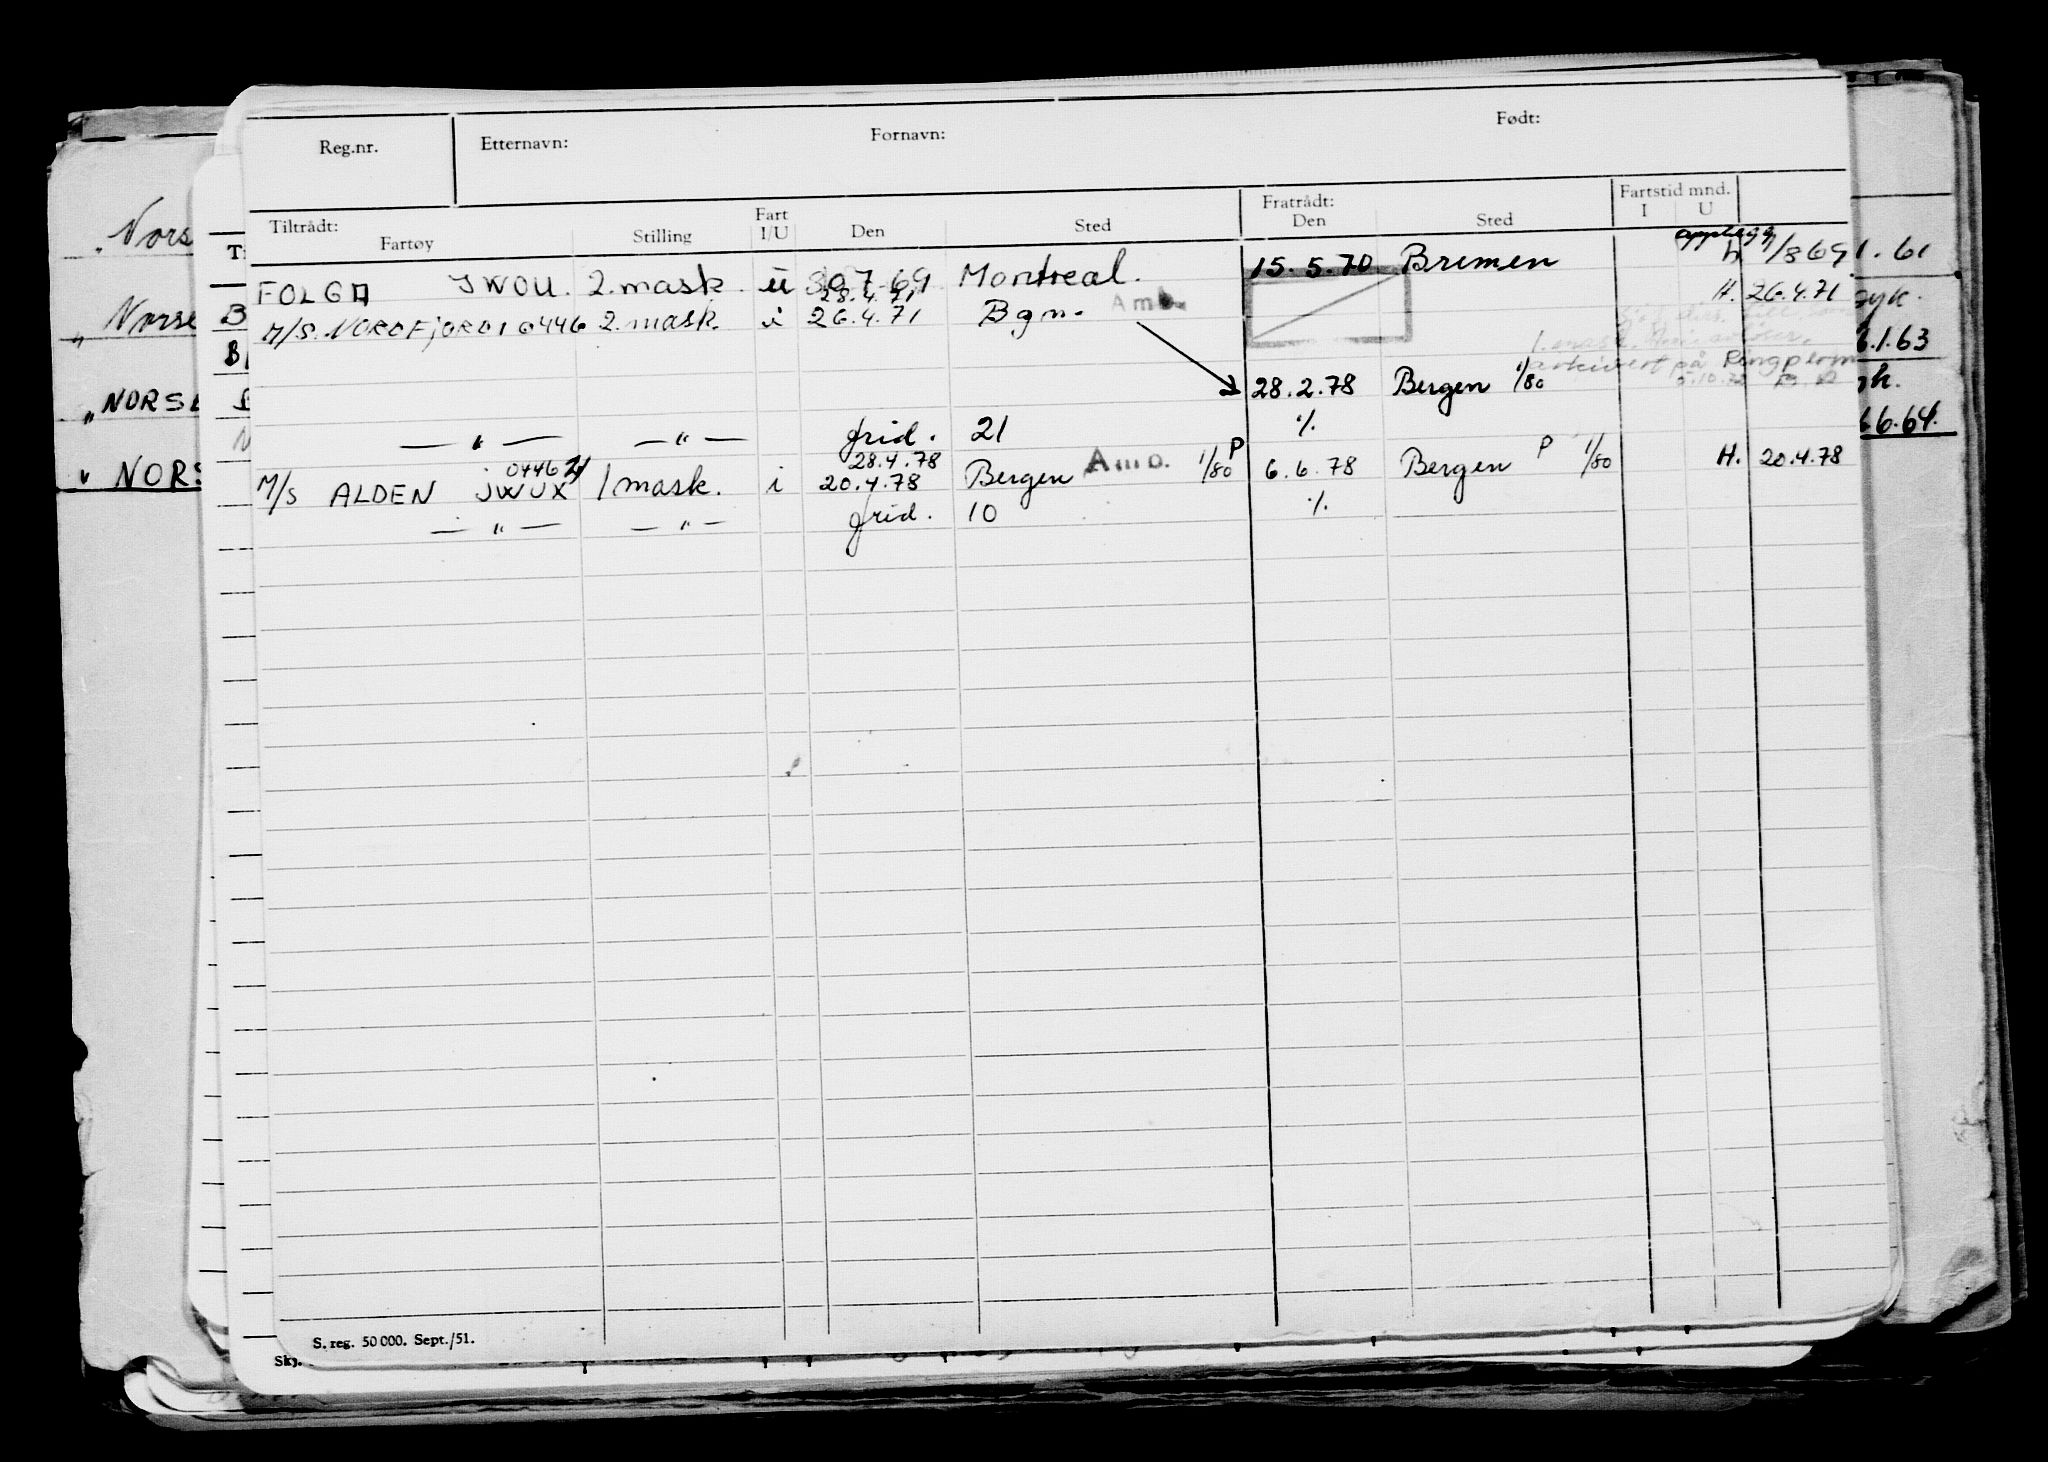 Reg.nr. Etternavn: Fornavn: Født:
Tiltrådt: Fartøy Stilling Fart I/U Den Sted Fratrådt: Den Sted Fartstid mnd. I U
FOLGA JWOU. 2.mask. u 30.7.69 Montreal. 15.5.70 Bremen H. 1/8 69
28.4.71 H. 26.4.71
M/S. NORDFJORD 1 0446 2.mask. i 26.4.71 Bgn. Amb.
1. mask.
arkivert på
28.2.78 Bergen 1/80
— " — — " — frid. 21 %
M/S ALDEN 0446 JWUX 1 mask. i 28.4.78 20.4.78 Bergen Amb. P 1/80 6.6.78 Bergen P 1/80 H. 20.4.78
— " — — " — frid. 10 %
S. reg. 50 000. Sept./51.
Skj.
Nors
"NORS
" NORS
1.61
6.1.63
6.6.64.